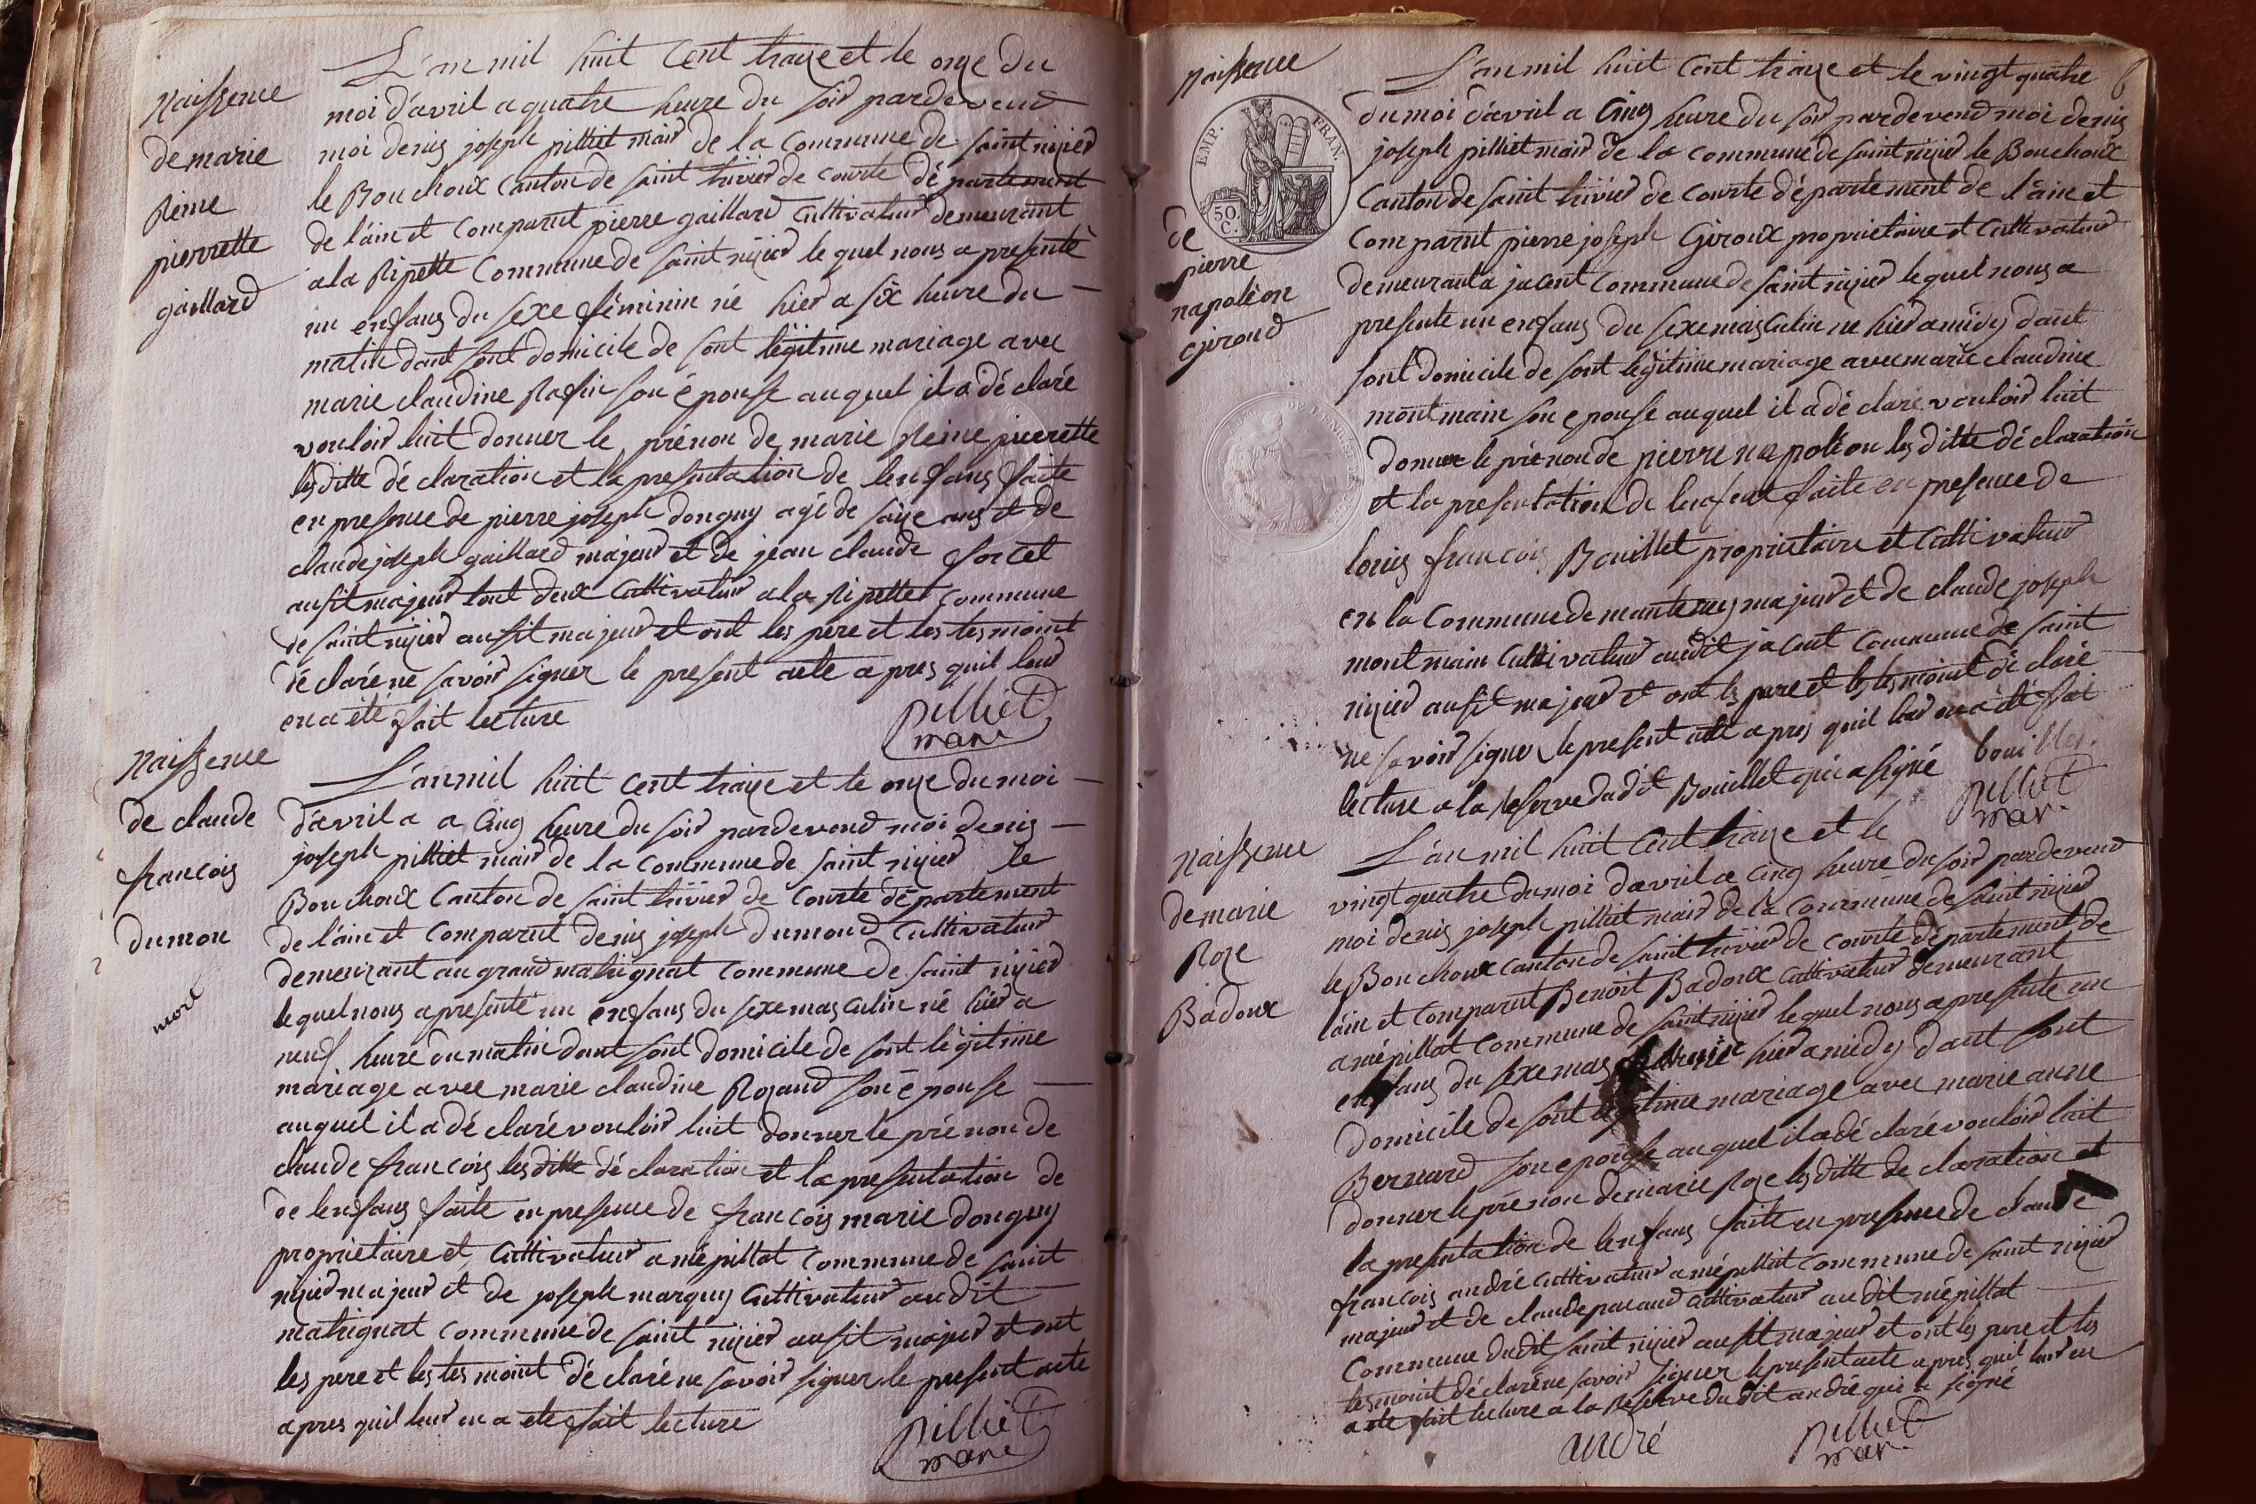 Naissence
de marie
Reine
pierrette
gaillard
L'an mil huit cent traize et le onze du
moi d'avril a quatre heure du soir pardevend
moi denis joseph pilliet mair de la commune de saint nizier
le Bouchoux canton de saint trivier de courte département
de l'ain et comparut pierre gaillard cultivateur demeurant
a la Ripette commune de saint nizier le quel nous a presenté
un enfans du sexe féminin né hier a six heure du
matin dant sont domicile de sont légitime mariage avec
marie claudine Rafin son épouse auquel il a déclaré
vouloir luit donner le prénon de marie Reine pierrette
les ditte déclaration et la presentation de lenfans faite
en presence de pierre joseph donguy agé de saize ans et de
claude joseph gaillard majeur et de jean claude forcet
ausit majeur tout deux cultivateur a la Ripettet commune
de saint nizier ausit majeur et ont les pere et les tesmoint
déclaré ne savoir signer le present acte apres quil leur
en a été fait lecture
pilliet
mare
Naissence
de claude
francois
dumon
mort
L'an mil huit cent traize et le onze du moi
d'avril a a cinq heure du soir pardevend moi denis
joseph pilliet mair de la commune de saint nizier le
Bouchoux canton de saint trivier de courte département
de l'ain et comparut denis joseph dumond cultivateur
demeurant au grand matrignat commune de saint nizier
le quel nous a presenté un enfans du sexe masculin né hier a
neuf heure du matin dant sont domicile de sont légitime
mariage avec marie claudine Rozand son épouse
auquel il a déclaré vouloir luit donner le prénon de
claude francois les ditte déclaration et la presentation de
de lenfans faite en presence de francois marie donguy
proprietaire et cultivateur a mépillat commune de saint
nizier majeur et de joseph marquy cultivateur audit
matrignat commune de saint nizier ausit majeur et ont
les pere et les tesmoint déclaré ne savoir signer le present acte
apres quil leur en a eté fait lecture
pilliet
mare
6
Naissence
EMP. FRAN.
50.
C.
de
pierre
napoléon
Giroud
L'an mil huit cent traize et le vingt quatre
du moi d'avril a cinq heure du soir pardevend moi denis
joseph pilliet mair de la commune de saint nizier le Bouchoux
canton de saint trivier de courte département de l'ain et
comparut pierre joseph Giroux proprietaire et cultivateur
demeurant a jacent commune de saint nizier le quel nous a
presenté un enfans du sexe masculin né hier a midy dant
sont domicile de sont légitime mariage avec marie claudine
montmain son epouse auquel il a déclaré vouloir luit
donner le prénon de pierre napoléon les ditte déclaration
et la presentation de lenfent faite en presence de
louis francois Bouillet proprietaire et cultivateur
en la commune de mantenay majeur et de claude joseph
montmain cultivateur audit jacent commune de saint
nizier ausit majeur et ont les pere et les tesmoint déclaré
ne savoir signer le present acte apres quil leur en a été fait
lecture a la reserve dudit Bouillet qui a signé bouillet
pilliet
mar
Naissence
de marie
Roze
Badoux
L'an mil huit cent traize et le
vingt quatre du moi d'avril a cinq heure du soir pardevend
moi denis joseph pilliet mair de la commune de saint nizier
le Bouchoux canton de saint trivier de courte département de
lain et comparut Benoit Badoux cultivateur demeurant
a mépillat commune de saint nizier le quel nous a presenté un
enfans du sexe mas hier a midy dant sont
domicile de sont légitime mariage avec marie anne
Bernard son epouse auquel il a déclaré vouloir luit
donner le prénon de marie Roze les ditte déclaration et
la presentation de lenfans faite en presence de claude
francois andré cultivateur a mépillat commune de saint nizier
majeur et de claude pacaud cultivateur audit mépillat
commune dudit saint nizier ausit majeur et ont les pere et les
tesmoint déclaré ne savoir signer le present acte apres quil leur en
a eté fait lecture a la reserve dudit andré qui a signé
andré
pilliet
mar